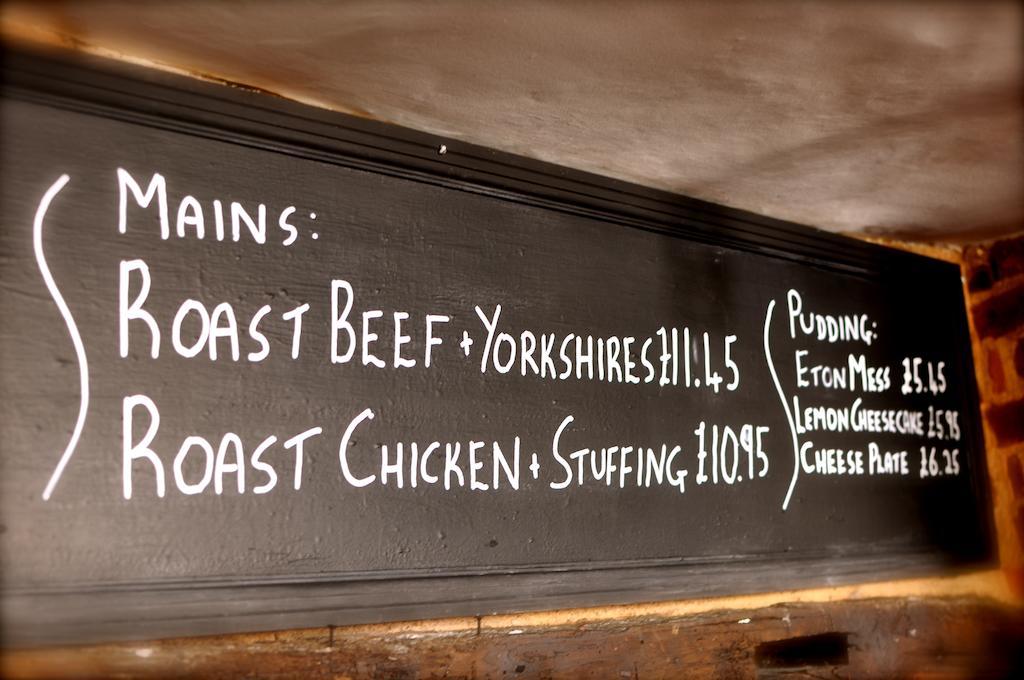 MAINS:
ROAST BEEF + YORKSHIRES £11.45
ROAST CHICKEN + STUFFING £10.95
PUDDING:
ETON MESS £5.45
LEMON CHEESECAKE £5.95
CHEESE PLATE £6.25